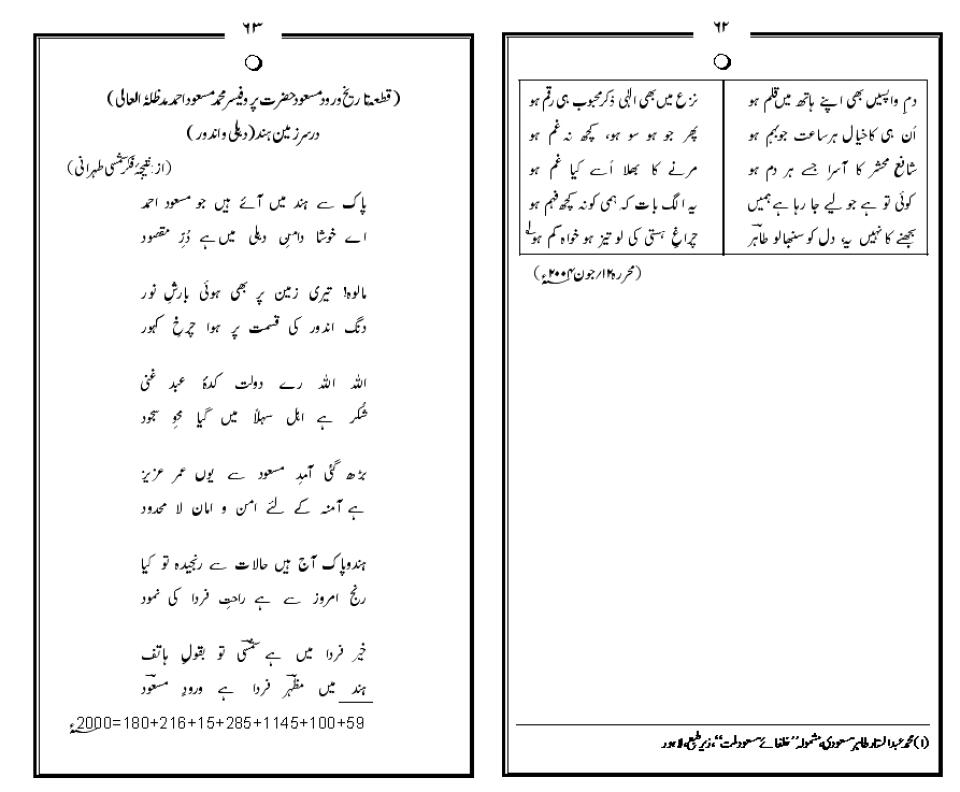 ۶۲
دمِ واپسیں بھی اپنے ہاتھ میں قلم ہو نزع میں بھی الٰہی ذکرِ محبوب ہی رقم ہو
اُن ہی کا خیال ہر ساعت جو بہم ہو پھر جو ہو سو ہو، کچھ نہ غم ہو
شافعِ محشر کا آسرا جسے ہر دم ہو مرنے کا بھلا اُسے کیا غم ہو
کوئی تو ہے جو لیے جا رہا ہے ہمیں یہ الگ بات کہ ہمی کو نہ کچھ فہم ہو
بجھنے کا نہیں یہ، دل کو سنبھالو طاہرؔ چراغِ ہستی کی لو تیز ہو خواہ کم ہو۱؎
(محررہ ۱۲/جون ۲۰۰۴ء)
(۱) محمد عبدالستار طاہر مسعودی، مشمولہ ”خلفائے مسعود ملت“، زیرِ طبع، لاہور
۶۳
(قطعہ تاریخ ورودِ مسعود حضرت پروفیسر محمد مسعود احمد مدظلہٗ العالی)
در سرزمین ہند (دہلی و اندور)
(از: نتیجۂ فکر شمسی طہرانی)
پاک سے ہند میں آئے ہیں جو مسعود احمد
اے خوشا دامنِ دہلی میں ہے دُرِّ مقصود
مالوہ! تیری زمین پر بھی ہوئی بارشِ نور
دنگ اندور کی قسمت پر ہوا چرخِ کہود
اللہ اللہ رے دولت کدۂ عبد غنی
شُکر ہے اہل سہلاً میں گیا محوِ سجود
بڑھ گئی آمدِ مسعود سے یوں عمر عزیز
ہے آمنہ کے لئے امن و امان لا محدود
ہندوپاک آج ہیں حالات سے رنجیدہ تو کیا
رنج امروز سے ہے راحتِ فردا کی نمود
خیر فردا میں ہے شمسیؔ تو بقولِ ہاتف
ہند میں مظہرِ فردا ہے ورودِ مسعود
2000=180+216+15+285+1145+100+59ء